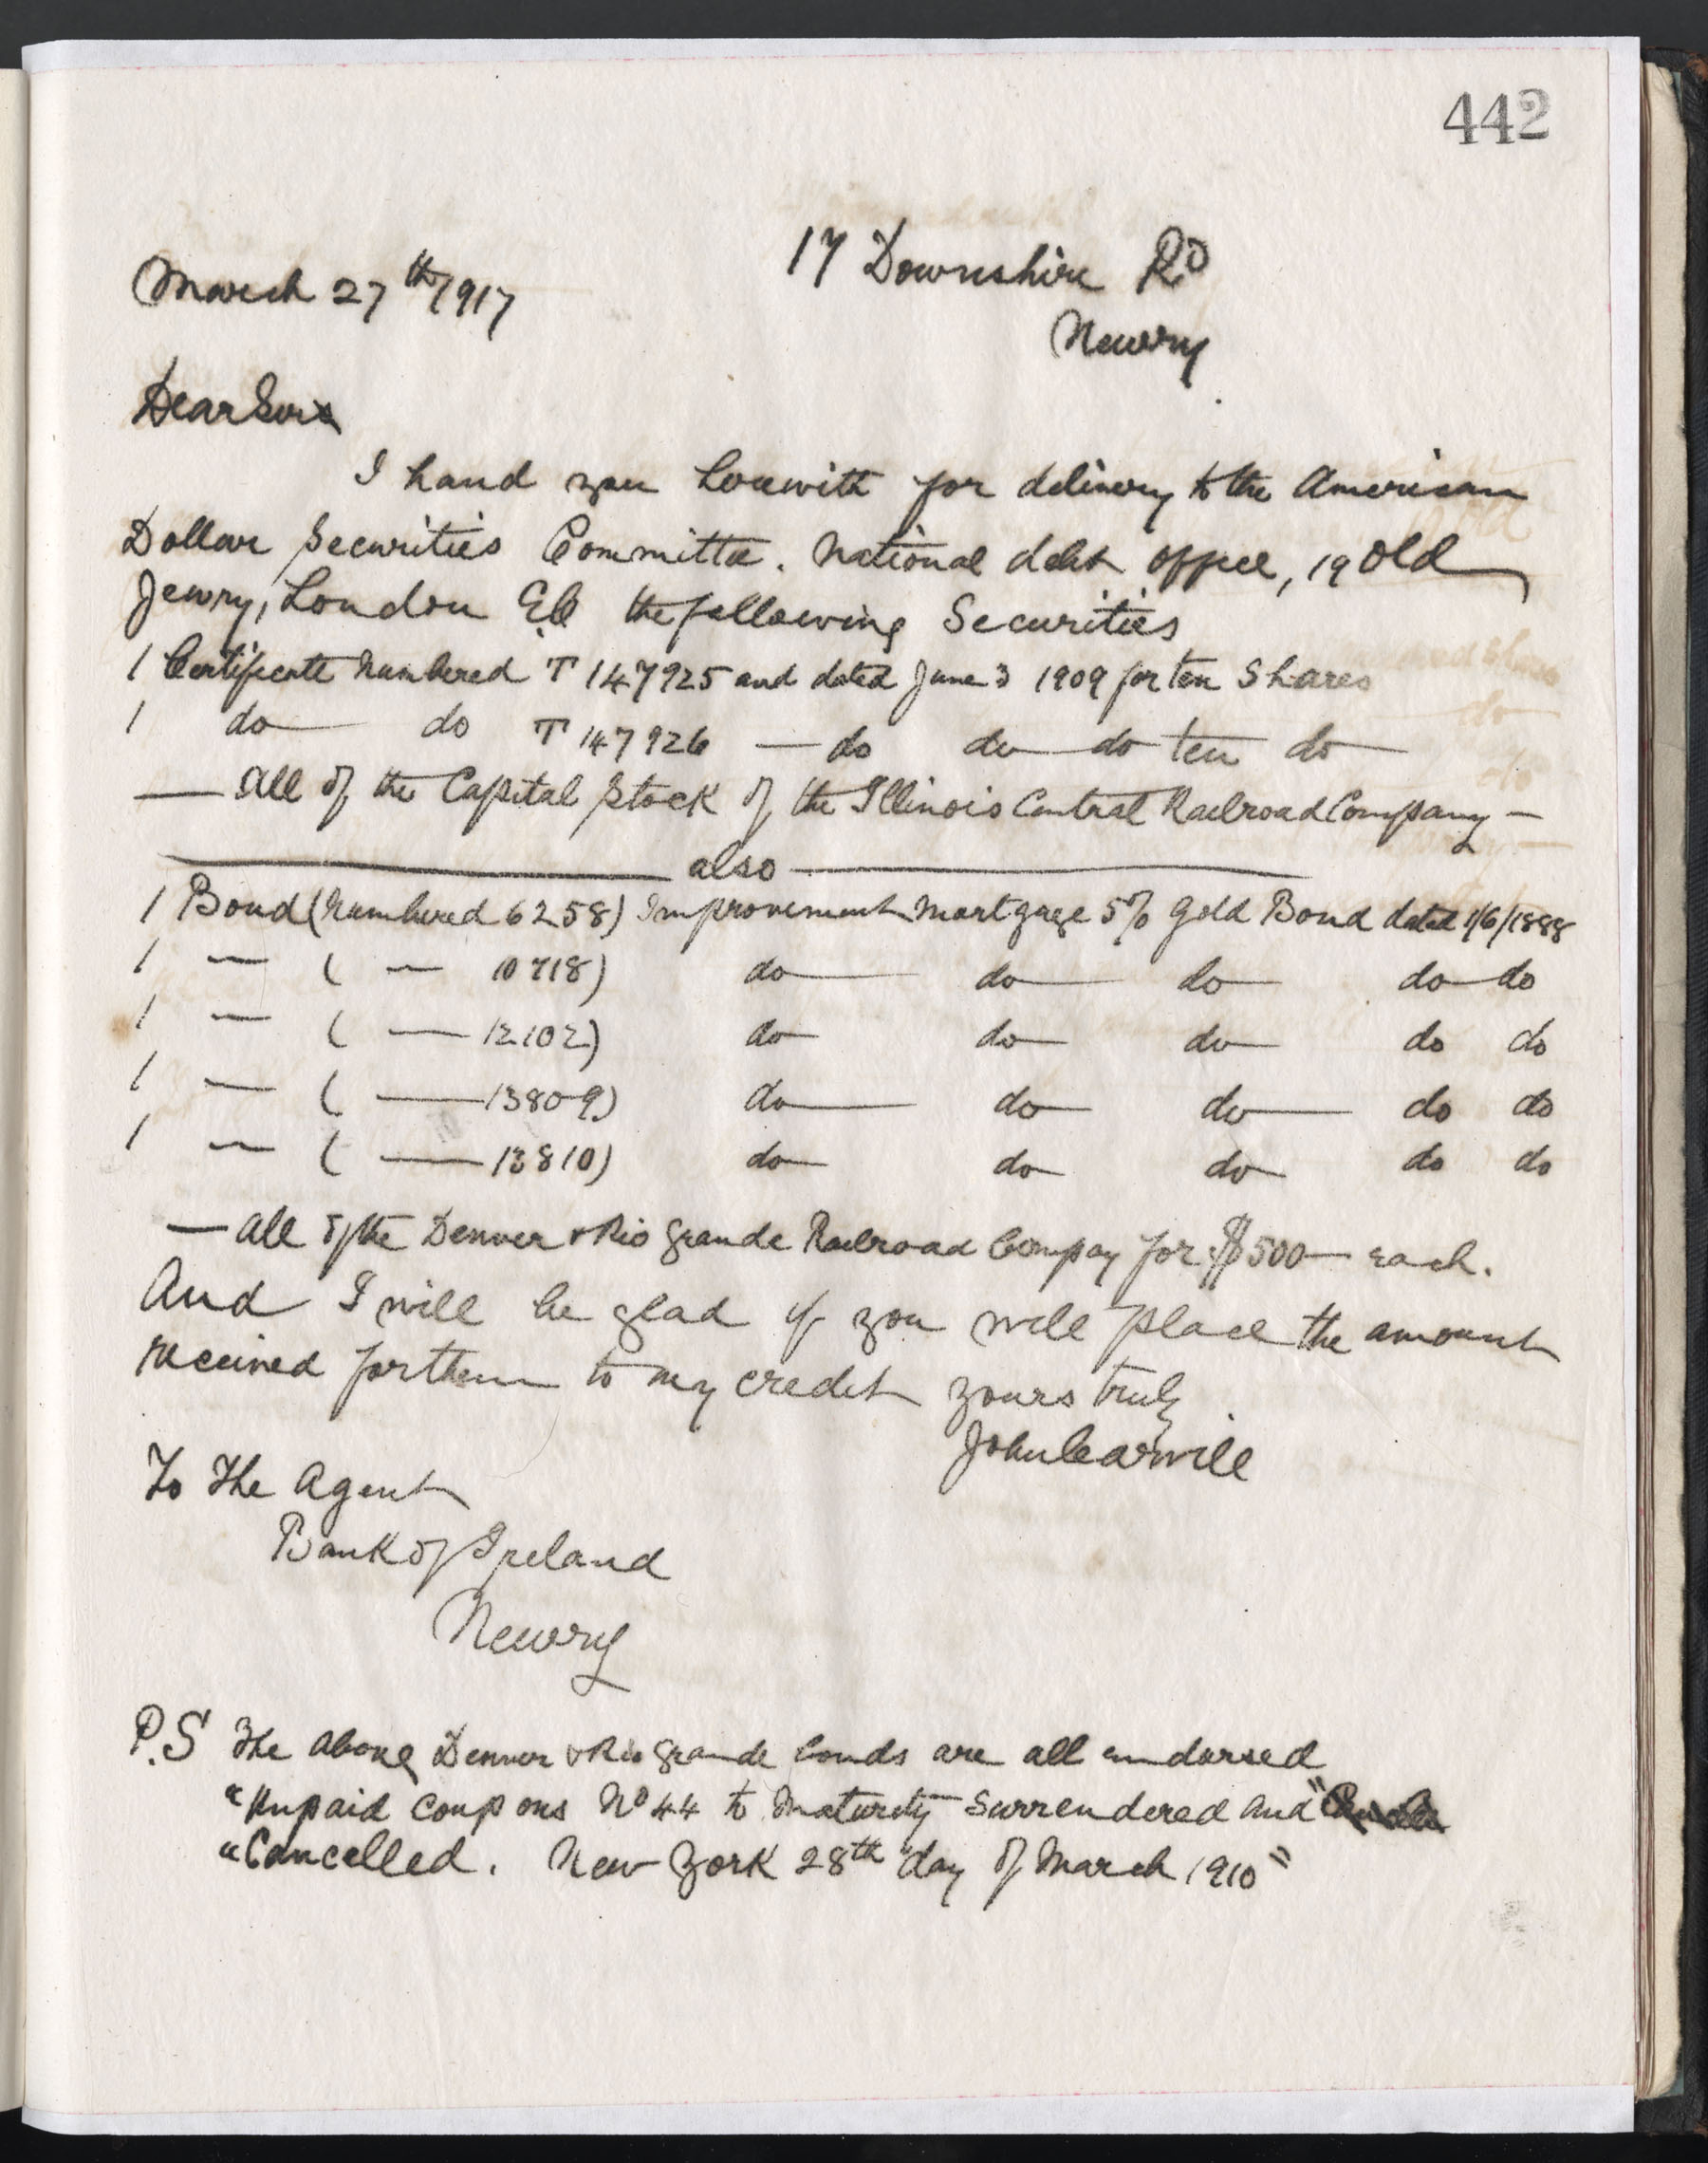 442
17 Downshire Rd
March 27th 1917
Newry
Dear Sir
I hand you herewith for delivery to the American
Dollar Securities Committee. National debt office, 19 Old
Jewry, London E.C the following Securities
1 Certificate numbered T 147925 and dated June 3 1909 for ten Shares
1 do do T 147926 — do do do ten do
— All of the Capital Stock of the Illinois Central Railroad Company —
also
1 Bond (numbered 6258) Improvement Mortgage 5% Gold Bond dated 1/6/1888
1 — ( — 10718) do do do do do
1 — ( — 12102) do do do do do
1 — ( — 13809) do do do do do
1 — ( — 13810) do do do do do
— All of the Denver & Rio Grande Railroad Compay for $500 — each.
And I will be glad if you will place the amount
received for them to my credit yours truly
John Carvill
To The Agent
Bank of Ireland
Newry
P.S The above Denver & Rio Grande bonds are all endorsed
"Unpaid coupons No 44 to Maturity Surrendered and"
"Cancelled. New York 28th day of March 1910"